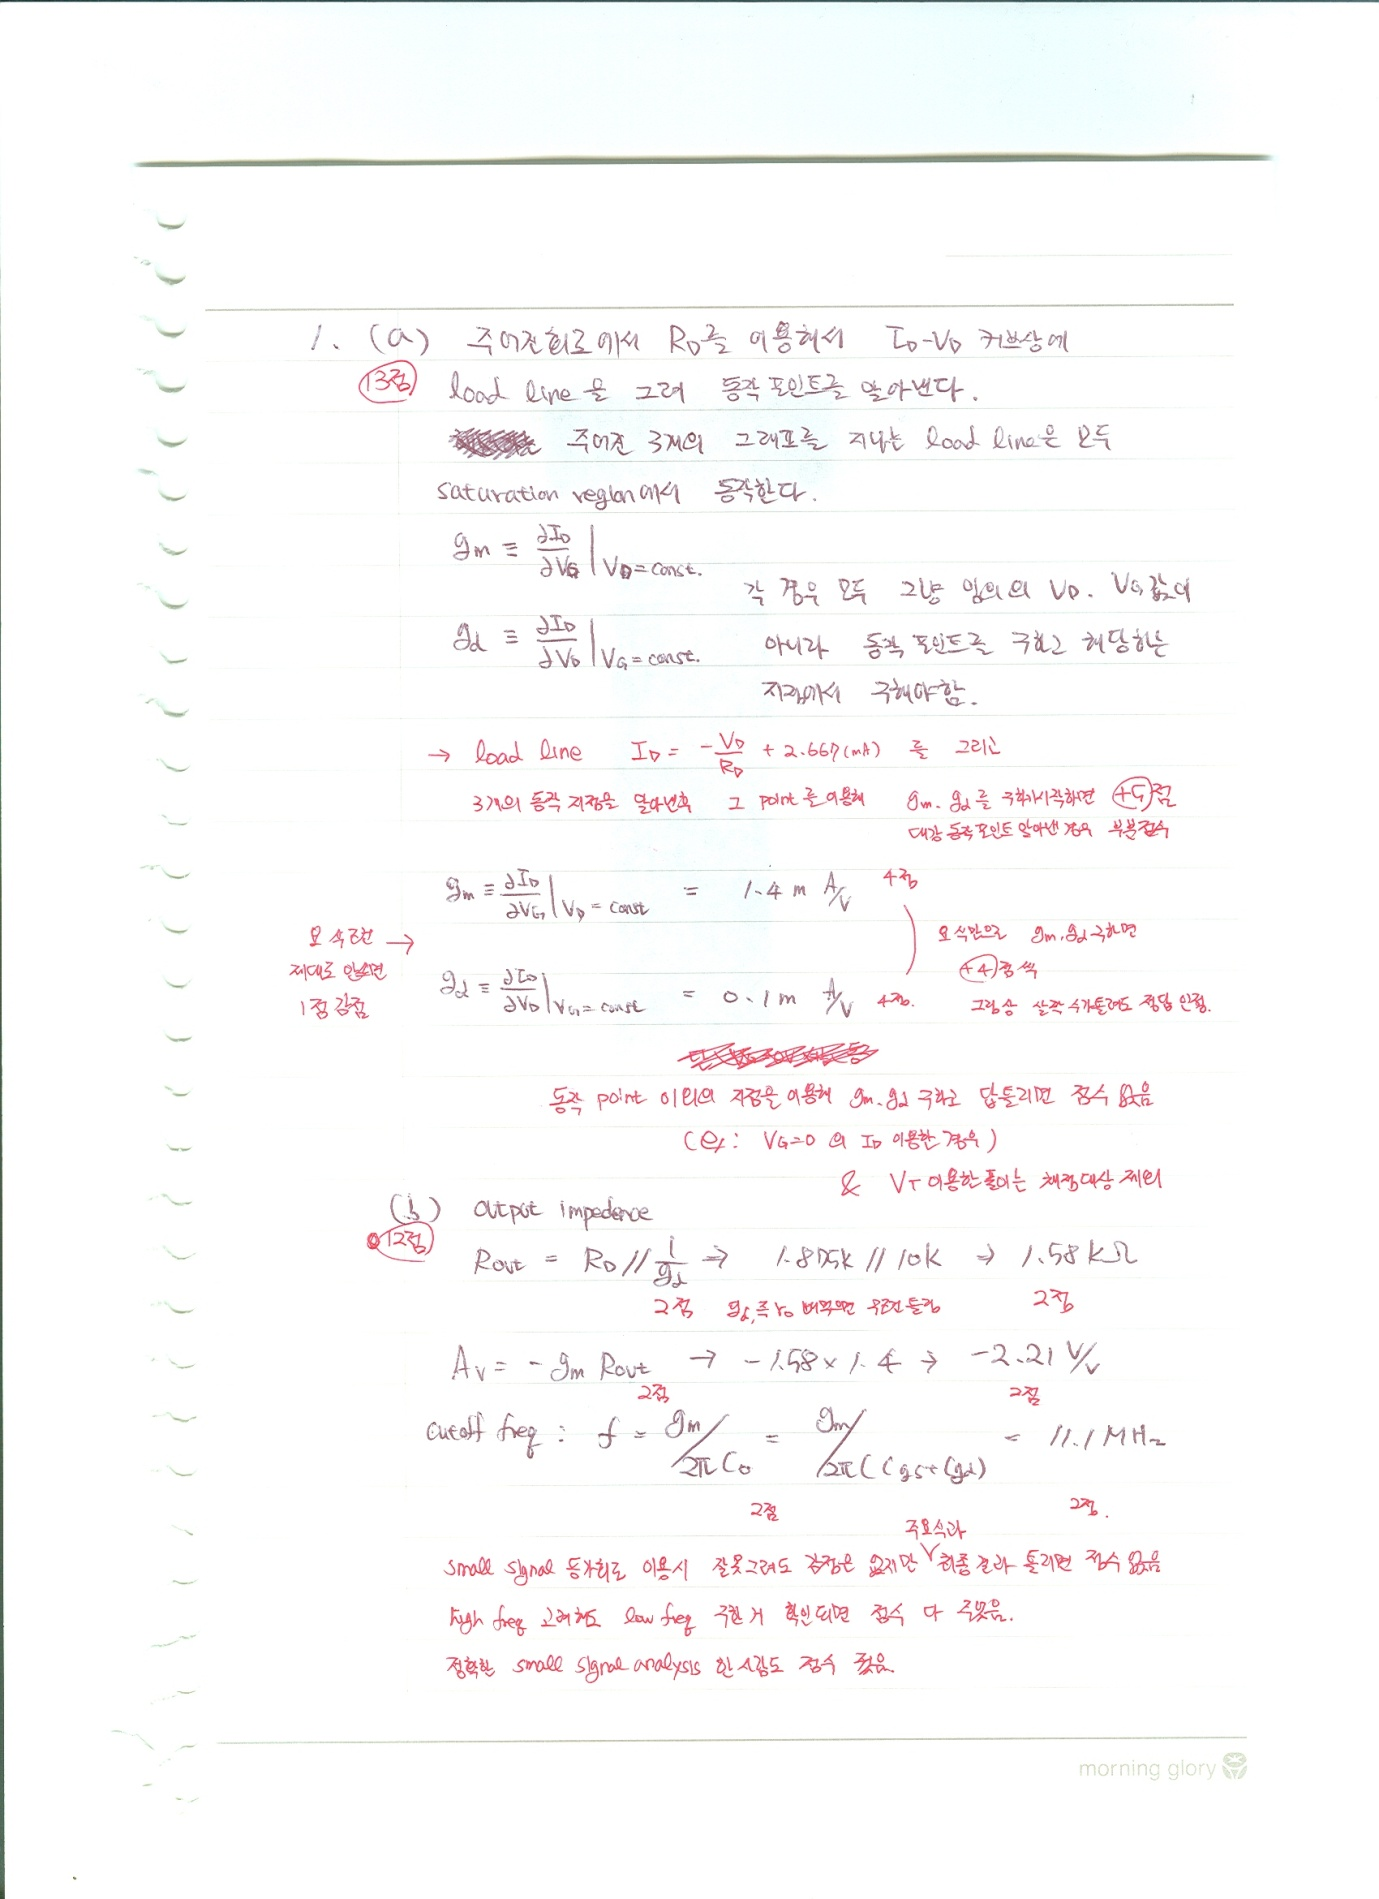 1. (a) 주어진회로에서 R_D를 이용해서 I_D-V_D 커브상에
13점
load line을 그려 동작 포인트를 알아낸다.
주어진 3개의 그래프를 지나는 load line은 모두
saturation region에서 동작한다.
g_m ≡ ∂I_D/∂V_G | V_D = const.
각 경우 모두 그냥 임의의 V_D, V_G 값이
g_d ≡ ∂I_D/∂V_D | V_G = const.
아니라 동작 포인트를 구하고 해당하는
지점에서 구해야함.
→ load line I_D = -V_D/R_D + 2.667(mA) 를 그리고
3개의 동작 지점을 알아낸후 그 point를 이용해 g_m, g_d를 구하기시작하면 +5점
대강 동작포인트 알아낸 경우 부분점수
g_m ≡ ∂I_D/∂V_G | V_D = const = 1.4 m A/V 4점
요 식조건 →
제대로 안쓰면
1점 감점
요 식만으로 g_m, g_d 구하면
+4점 씩
g_d ≡ ∂I_D/∂V_D | V_G = const = 0.1 m A/V 4점.
그림상 살짝 수가틀려도 정답 인정.
동작 point 이외의 지점을 이용해 g_m, g_d 구하고 답틀리면 점수 없음
(ex: V_G=0 의 I_D 이용한 경우)
& V_T 이용한 풀이는 채점대상 제외
(b) output impedence
12점
Rout = R_D // 1/g_d → 1.875k // 10k → 1.58 kΩ
2점 g_d, 즉 r_o 빼먹으면 무조건 틀림 2점
A_V = - g_m Rout → -1.58 × 1.4 → -2.21 V/V
2점 2점
cutoff freq : f = g_m/2πC_0 = g_m/2π(C_gs+C_gd) = 11.1 MHz
2점 2점.
주요식과
small signal 등가회로 이용시 잘못그려도 감점은 없지만 ∨ 최종 결과 틀리면 점수 없음
high freq 고려해도 low freq 구한거 확인되면 점수 다 주었음.
정확한 small signal analysis 한사람도 점수 줬음.
morning glory